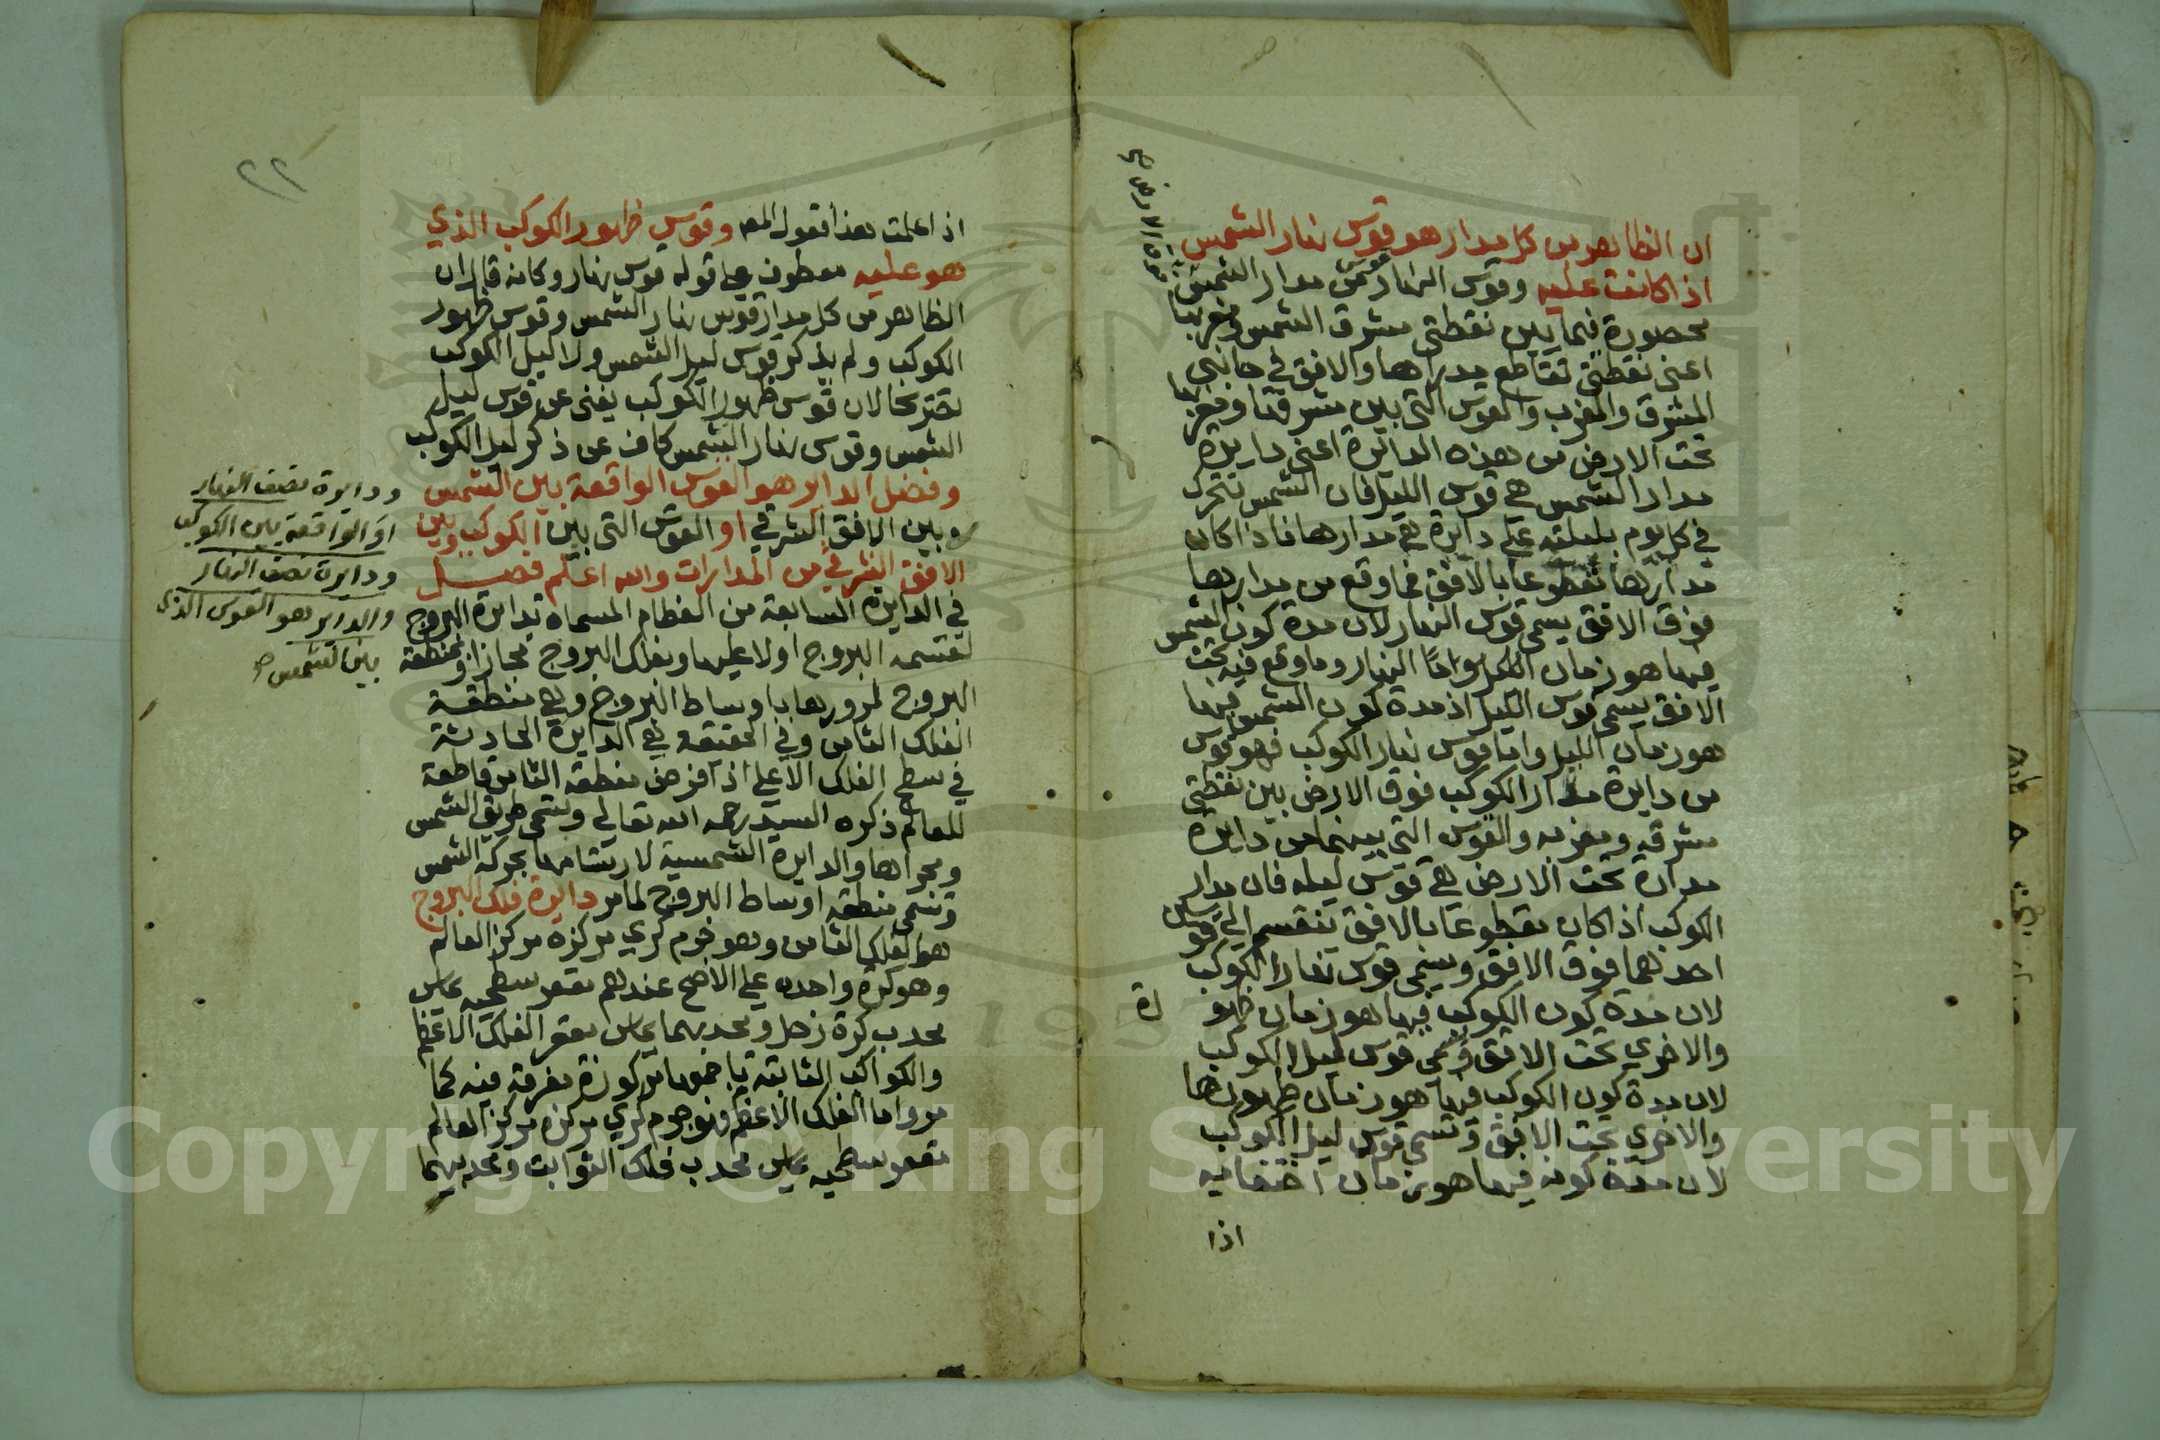 ان الظاهر من كل مدار هو قوس نهار الشمس
اذا كانت عليه وقوس النهار قوس من مدار الشمس
فوق الارض صح
محصورة فيما بين نقطتي مشرق الشمس ومغربها
اعني نقطتي تقاطع مدارها والافق في جانبي
المشرق والمغرب والقوس التي بين مشرقها ومغربها
تحت الارض من هذه الدائرة اعني دايرة
مدار الشمس هي قوس الليل فان الشمس تتحرك
في كل يوم بليلته على دايرة هي مدارها فاذا كان
مدارها مقطوعا بالافق فما وقع من مدارها
فوق الافق يسمى قوس النهار لان مدة كون الشمس
فيها هو زمان النهار وما وقع فيه تحت
الافق يسمى قوس الليل اذ مدة كون الشمس فيها
هو زمان الليل واما قوس نهار الكوكب فهو قوس
من دايرة مدار الكوكب فوق الارض بين نقطتي
مشرقه ومغربه والقوس التي بينهما من دايرة
مداره تحت الارض هي قوس ليله فان مدار
الكوكب اذا كان مقطوعا بالافق ينقسم الى قوسين
احدهما فوق الافق ويسمى قوس نهار الكوكب
لان مدة كون الكوكب فيها هو زمان ظهو
ره
والاخرى تحت الافق وتسمى قوس ليل الكوكب
لان مدة كون الكوكب فيها هو زمان ظهورها
والاخرى تحت الافق وتسمى قوس ليل الكوكب
لان مدة كونه فيها هو زمان اختفايه
اذا
٢٢
اذا علمت هذا فقول المصه وقوس ظهور الكوكب الذي
هو عليه معطوف على قوله قوس نهار وكانه قال ان
الظاهر من كل مدار قوس نهار الشمس وقوس ظهور
الكوكب ولم يذكر قوس ليل الشمس ولا ليل الكوكب
لان قوس ظهور الكوكب يغني عن قوس ليل
الشمس وقوس نهار الشمس كاف عن ذكر ليل الكوكب
وفضل الداير هو القوس الواقعة بين الشمس
وبين الافق الشرقي او القوس التي بين الكوكب وبين
الافق الشرقي من المدارات والله اعلم فصل
ودايرة نصف النهار
او الواقعة بين الكوكب
ودايرة نصف النهار
والداير هو القوس الذي
بين الشمس صح
في الدايرة السابعة من العظام المسماه بدايرة البروج
لقسمه البروج اولا عليها وبفلك البروج مجازا ومنطقة
البروج لمرورها باوساط البروج وهي منطقة
الفلك الثامن وفي الحقيقه هي الدايرة الحادثة
في سطح الفلك الاعلى اذا فرض منطقه الثامن قاطعة
للعالم ذكره السيد رحمه الله تعالى وتسمى طريق الشمس
ومجراها والدايرة الشمسية لارتسامها بحركة الشمس
وتسمى منطقه اوساط البروج لما مر دايرة فلك البروج
هو الفلك الثامن وهو جرم كري مركزه مركز العالم
وهو كرة واحده على الاصح عندهم مقعر سطحيه يماس
محدب كرة زحل ومحدبهما يماس مقعر الفلك الاعظم
والكواكب الثابته باجمعها مركوزة مفرقه فيه كما
مر واما الفلك الاعظم فهو جرم كري مركزه مركز العالم
مقعر سطحيه يماس محدب فلك الثوابت ومحدبهما
Copyright © King Saud University
1957